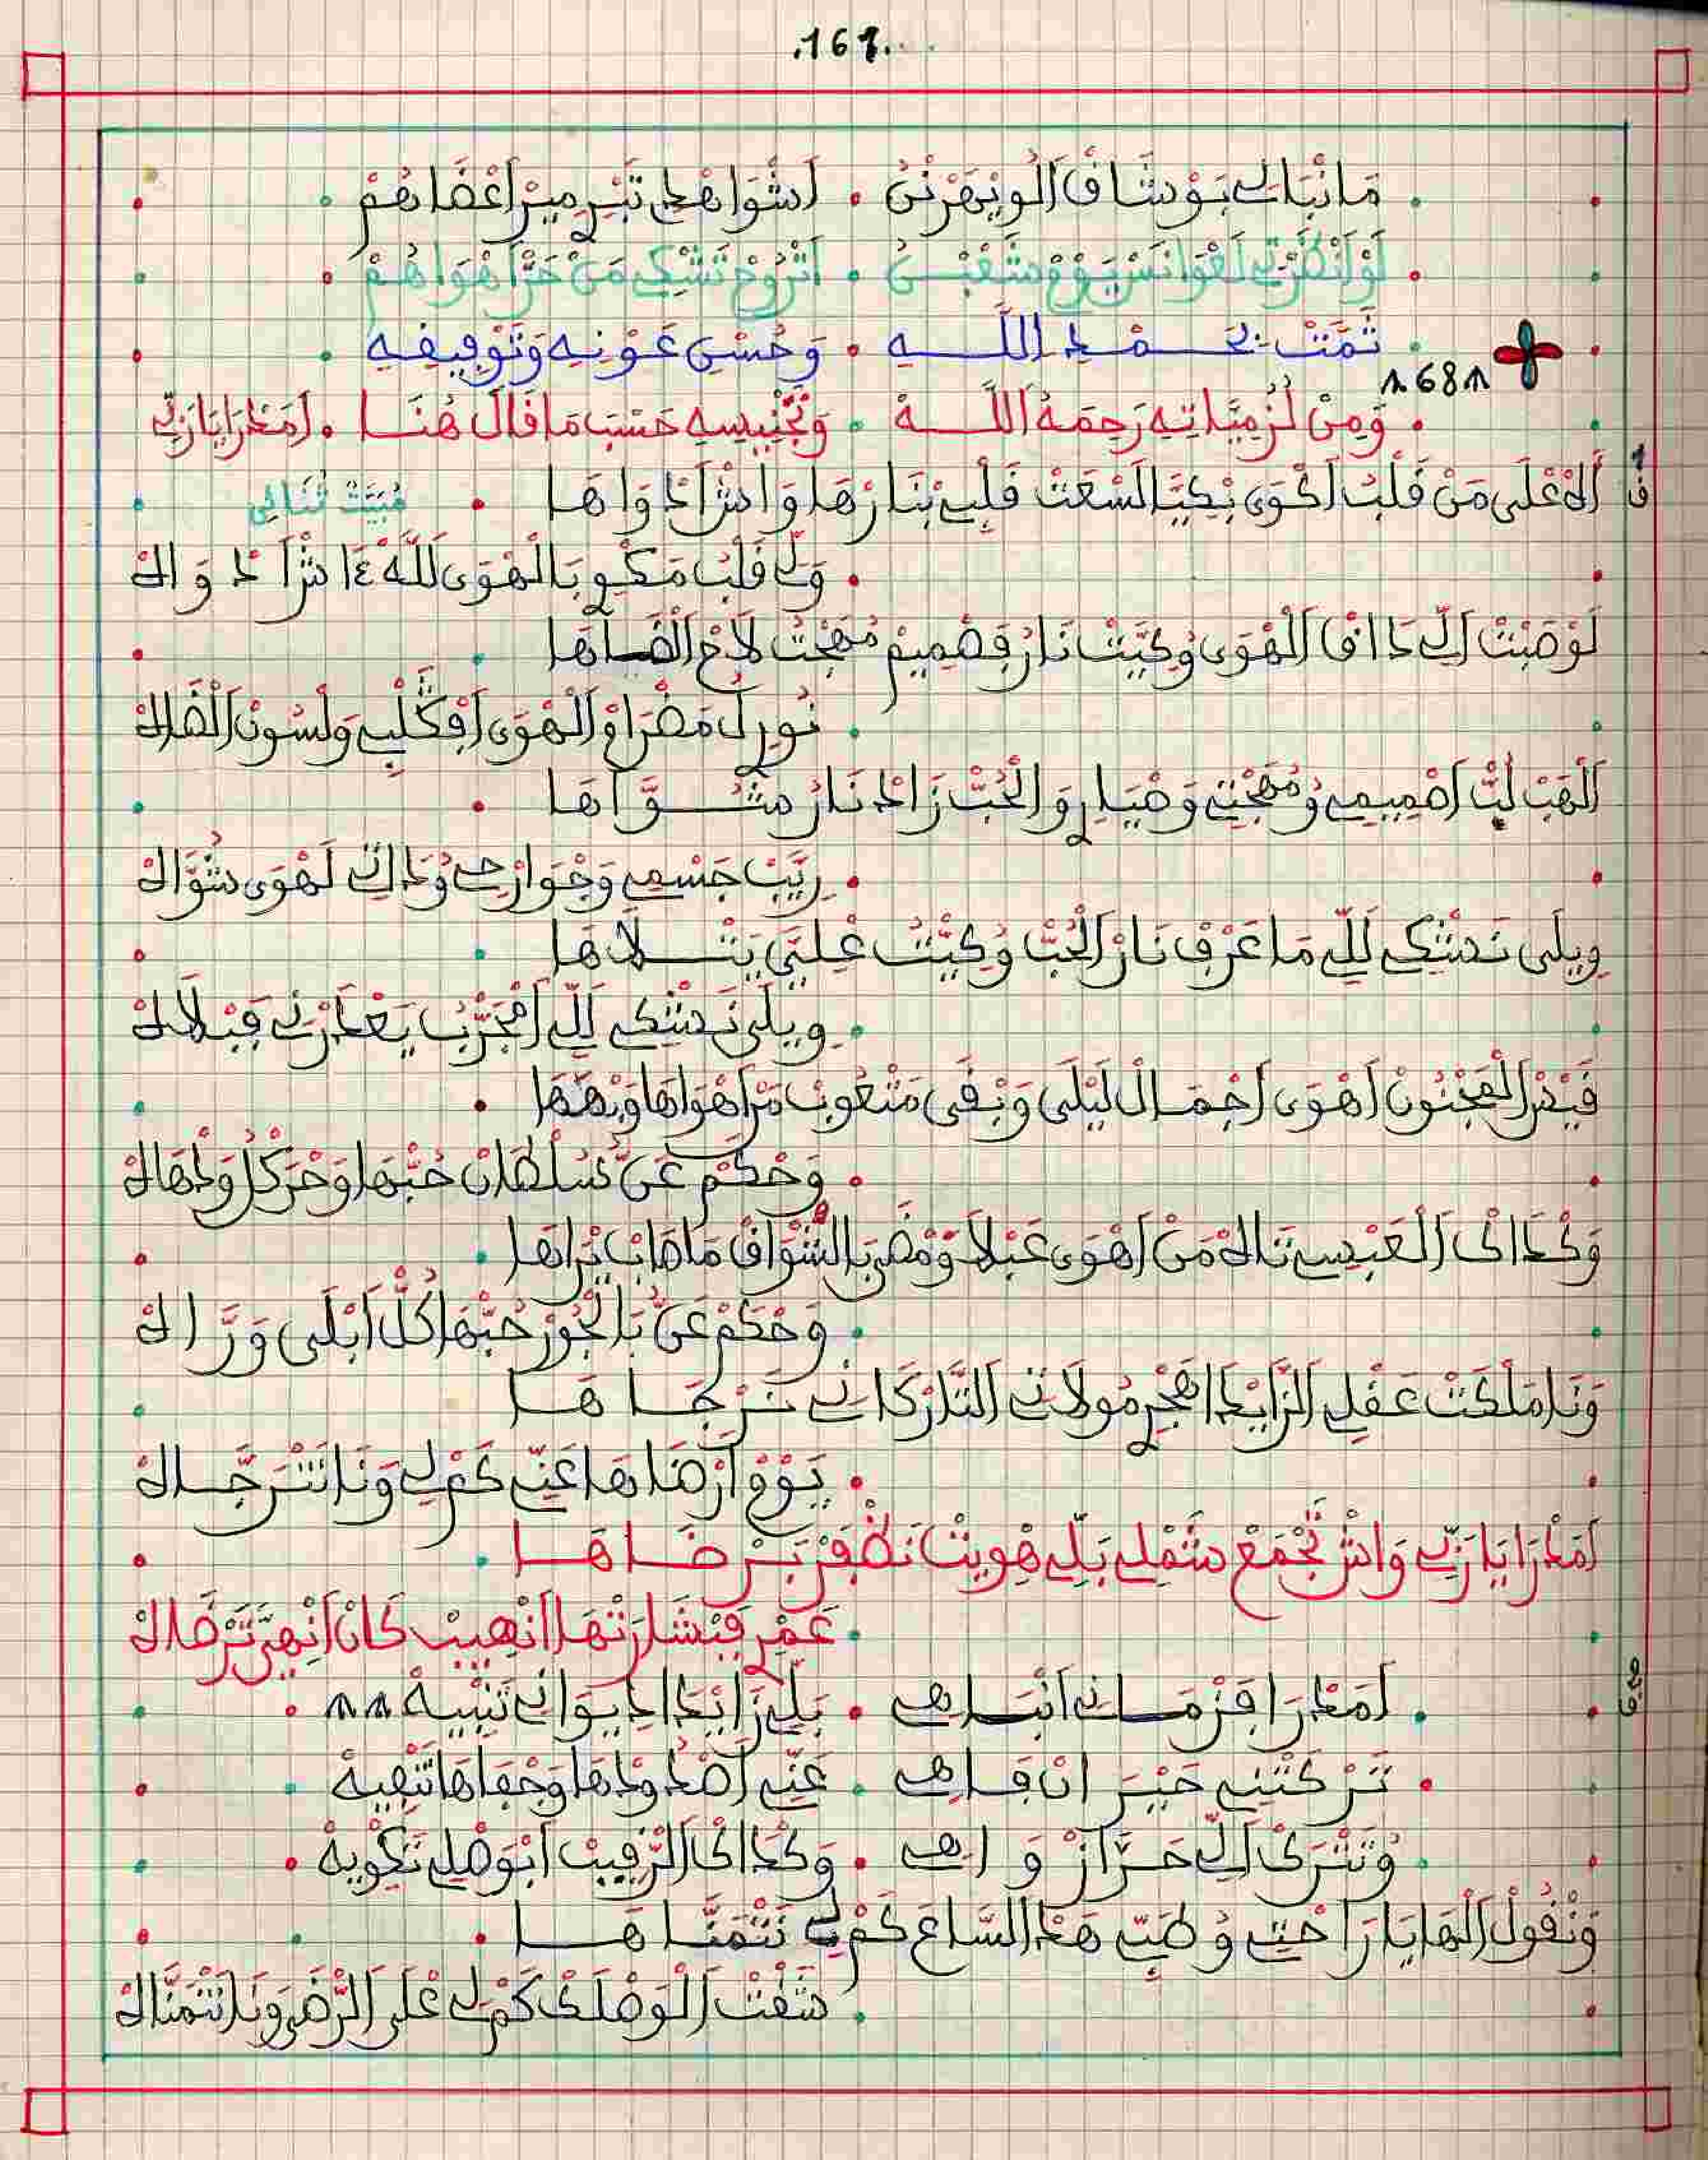 .161.
مَانْبَاك بَوْشَاقْ الْوِيهَرْنِي . اَشْوَاهْد تَبْرِ مِيرْ اَعْضَاهُمْ
لَوْ اَنْظَرْتِ لَغْوَانَسْ يَوْمْ شَعْبْنِي . اَتْرُوحْ تَشْكِي مَنْ حَرّْ اَهْوَاهُمْ
تَمَّتْ بِحَمْدِ اللَّهِ . وَحُسْنِ عَوْنِهِ وَتَوْفِيقِهِ
168
وَمِنْ لُزْمِيَّاتِهِ رَحِمَهُ اللَّهْ . وَتَجْنِيسِهِ حَسْبَ مَا قَالَ هُنَا . اَمَدْرَا يَا رَبِّي
ق 1
اَلَهْ عْلَى مَنْ قَلْبُ اَكْوَى بْكِيَّا لَسْعَتْ قَلْبِي بْنَارْهَا وَاشْ اَدْوَاهَا
مْبَيَّتْ ثْنَائِي
وَلِّي قَلْبُ مَكْوِي بَالْهْوَى لَلَّهْ ءَاشْ اَدْوَاهْ
لَوْصَبْتْ اَلِّي ذَاقْ الْهْوَى وُكِيَّتْ نَارُ فِصْمِيمْ مُهَجْتُ لَاحْ الْضَاهَا
نُورِي لُ مَضْرَامْ الْهْوَى اَفْكَلْبِي وَلْسُونْ الْضَاهْ
اَلْهَبْ لَبّْ اَصْمِيمِي وُمُهَجْتِي وَضْيَارِي وَالْحُبّْ زَادْ نَارُ مَشْوَاهَا
رِيَّبْ جَسْمِي وَجْوَارْحِي وُذَاتِي لَهْوَى شْوَاهْ
وِيلَى نَشْكِي لَلِّي مَا عَرْفْ نَارْ الْحُبّْ وُكِيَّتُ عْلِيَّ يَتْلَاهَا
وِيلَى نَشْكِي لَلِّي اَمْجَرَّبْ يَعْذَرْنِي فَبْلَاهْ
قَيْسْ الْمَجْنُونْ اَهْوَى اَجْمَالْ لَيْلَى وَبْقَى مَتْعُوبْ مَنْ اَهْوَاهَا وَبْهَاهَا
وَحْكَمْ عَنُّ سُلْطَانْ حُبّْهَا وَحْرَكْلُ وَدْهَاهْ
وَكْذَاكْ الْعَبْسِي تَاهْ مَنْ اَهْوَى عَبْلَا وَمْضَى بَالشْوَاقْ مَاصَابْ يَرَاهَا
وَحْكَمْ عَنُّ بَالْجُورْ حُبّْهَا كُلّْ اَبْلَى وَرَّاهْ
وَنَا مَلْكَتْ عَقْلِي الزَّايْدَا هَجْرِي مُولَاتِي التَّارْكَانِي نَرْجَاهَا
يَوْمْ اَرْضَاهَا عَنِّي كَمْ لِي وَنَا نَتْرَجَّاهْ
اَمَدْرَا يَا رَبِّي وَاشْ تَجْمَعْ شَمْلِي بَلِّي هْوِيتْ نَظْفَرْ بَرْضَاهَا
عَمْرِي فَبْشَارَتْهَا اَنْهِيبْ كَانْ اَنْهِيَّ تَرْضَاهْ
اَمَدْرَا فَزْمَانِي اَنْبَاهِي . بَلِّي زَايْدَا دِيوَانِي تَنْبِيهْ
تَرْكَتْنِي حَيْرَانْ فَاهِي . عَنِّي اَصْدُودْهَا وَجْفَاهَا تَنْفِيهْ
وُتَنْتْرَكْ اَلِّي حَرَّازْ وَاهِي . وَكْذَاكْ الرّْقِيبْ اَبْوَصْلِي تَكْوِيهْ
وَنْقُولْ الْهَا يَا رَاحْتِي وُطَبِّي هَذْ السَّاعَ كَمْ لِي نَتْمَنَّاهَا
شَفْتْ الْوَصْلَكْ كَمْ لِي عْلَى الرّْضَى وَنَا نَتْمَنَّاهْ